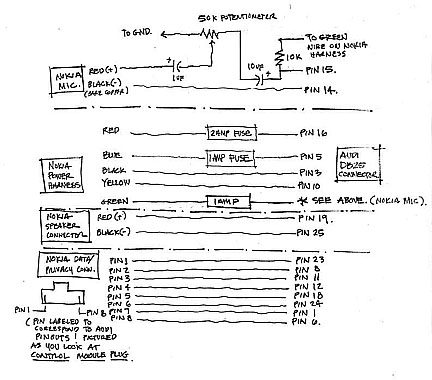 50K POTENTIOMETER
TO GND.
TO GREEN
WIRE ON NOKIA
HARNESS
10K
10UF
+
1UF
+
NOKIA
MIC.
RED(+)
PIN 15.
BLACK(-)
PIN 14.
RED
2AMP FUSE
PIN 16
BLUE
1AMP FUSE
PIN 5
NOKIA
POWER
HARNESS
BLACK
PIN 3
AUDI
DB25
CONNECTOR
YELLOW
PIN 10
GREEN
1AMP
* SEE ABOVE. (NOKIA MIC).
NOKIA
SPEAKER
CONNECTOR
RED(+)
PIN 19.
BLACK(-)
PIN 25
NOKIA DATA/
PRIVACY CONN.
PIN 1
PIN 23
PIN 2
PIN 8
PIN 3
PIN 11
PIN 4
PIN 12
PIN 5
PIN 18
PIN 6
PIN 24
PIN 7
PIN 1
PIN 8
PIN 6.
PIN 1
PIN 8
(PIN LABELED TO
CORRESPOND TO AUDI
PINOUTS) PICTURED
AS YOU LOOK AT
CONTROL MODULE PLUG.